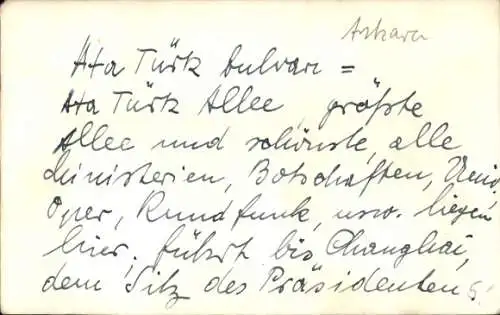 Ankara
Ata Türk bulvarı =
Ata Türk Allee, größte
Allee und schönste, alle
Ministerien, Botschaften, Univ.,
Oper, Rundfunk, usw. liegen
hier; führt bis Changhai,
dem Sitz des Präsidenten